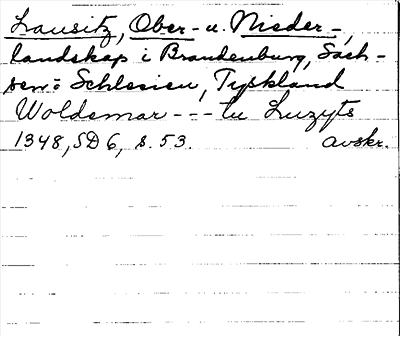 Lausitz, Ober- u. Nieder-,
landskap i Brandenburg, Sach-
sen o Schlesien, Tyskland
Woldemar --- tu Luzyts
1348, SD 6, s. 53. avskr.